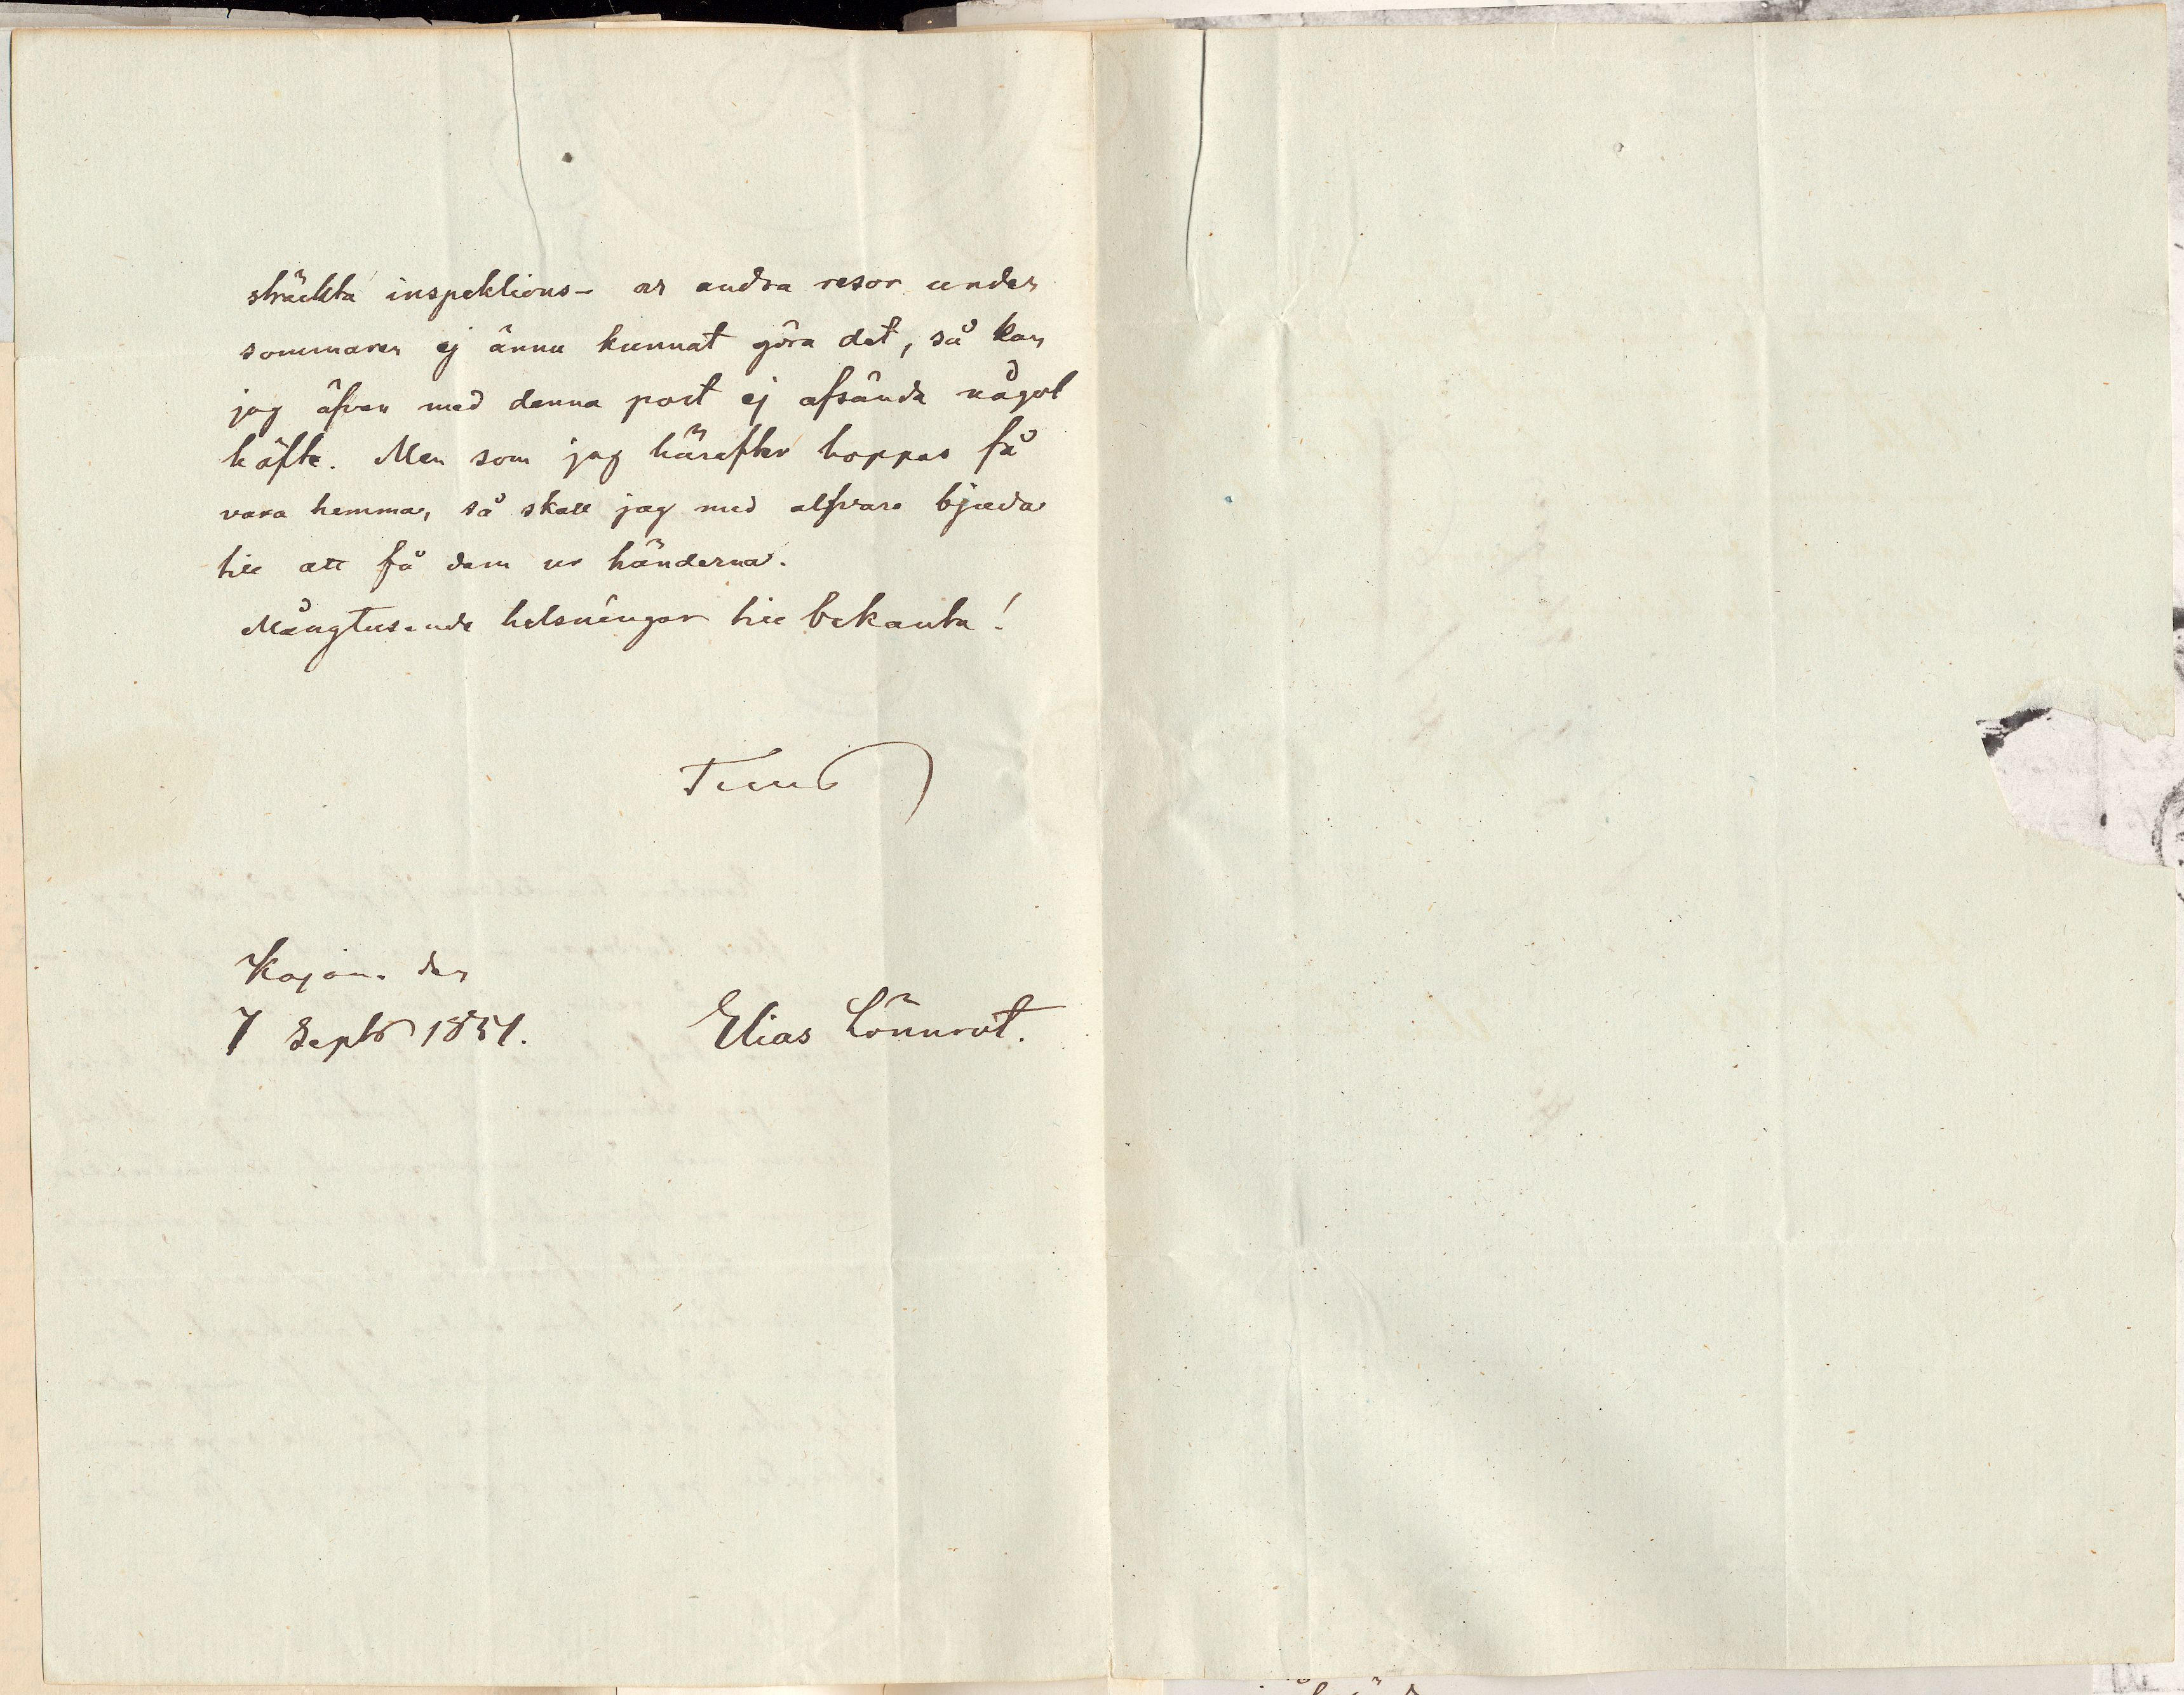 sträckta inspektions- och andra resor under
sommaren ej ännu kunnat göra det, så kan
jag äfven med denna post ej afsända något
häfte. Men som jag härefter hoppas få
vara hemma, så skall jag med alfvare bjuda
till att få dem ur händerna.
Mångtusende helsningar till bekanta!
Kajana den
7 Septb 1851.
Elias Lönnrot.